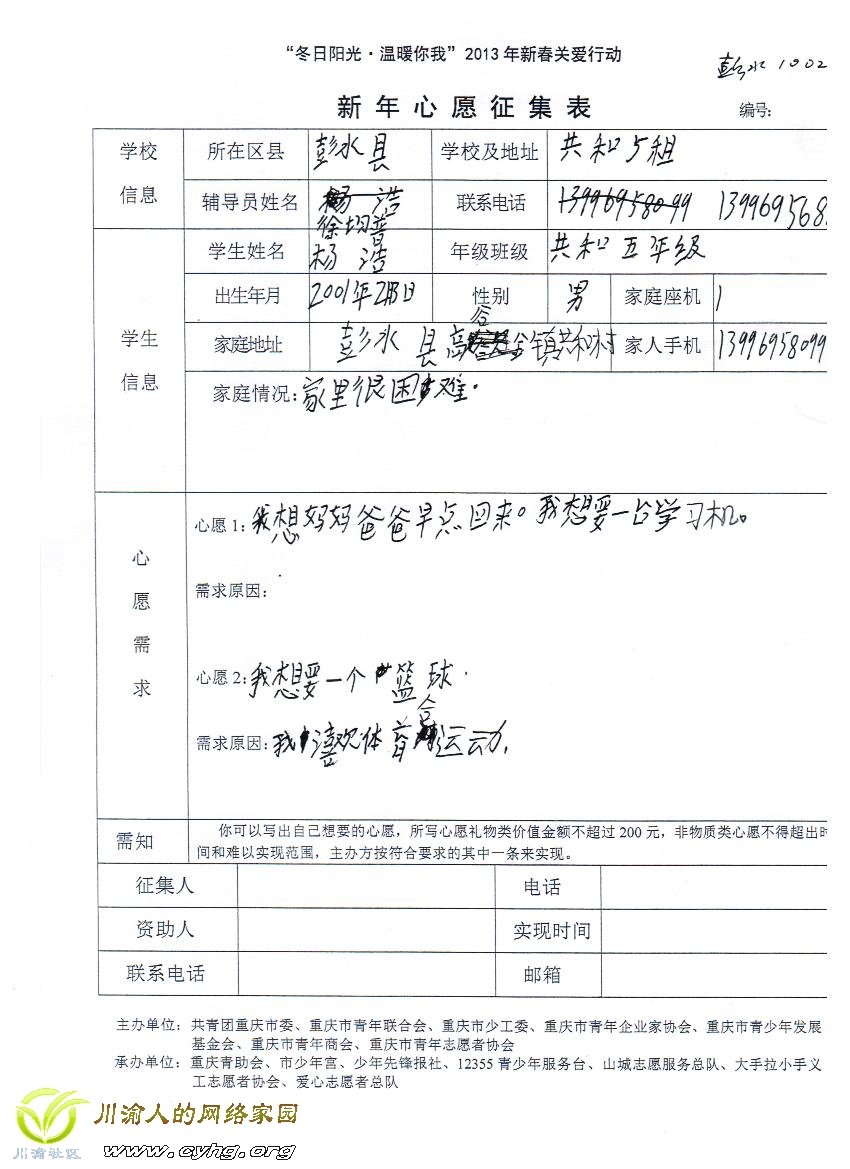 “冬日阳光·温暖你我”2013年新春关爱行动
彭水1002
新年心愿征集表
编号:
学校信息
所在区县 彭水县 学校及地址 共和5组
辅导员姓名 杨浩 徐均普 联系电话 13996958099 139969568
学生信息
学生姓名 杨浩 年级班级 共和五年级
出生年月 2001年2月3日 性别 男 家庭座机 1
家庭地址 彭水县高谷镇共和村 家人手机 13996958099
家庭情况:家里很困难.
心愿需求
心愿1:我想妈妈爸爸早点回来。我想要一台学习机。
需求原因:
心愿2:我想要一个篮球.
需求原因:我喜欢体育运动.
需知
你可以写出自己想要的心愿,所写心愿礼物类价值金额不超过200元,非物质类心愿不得超出时
间和难以实现范围,主办方按符合要求的其中一条来实现。
征集人 电话
资助人 实现时间
联系电话 邮箱
主办单位:共青团重庆市委、重庆市青年联合会、重庆市少工委、重庆市青年企业家协会、重庆市青少年发展
基金会、重庆市青年商会、重庆市青年志愿者协会
承办单位:重庆青助会、市少年宫、少年先锋报社、12355青少年服务台、山城志愿服务总队、大手拉小手义
工志愿者协会、爱心志愿者总队
川渝人的网络家园
川渝社区 www.cyhg.org